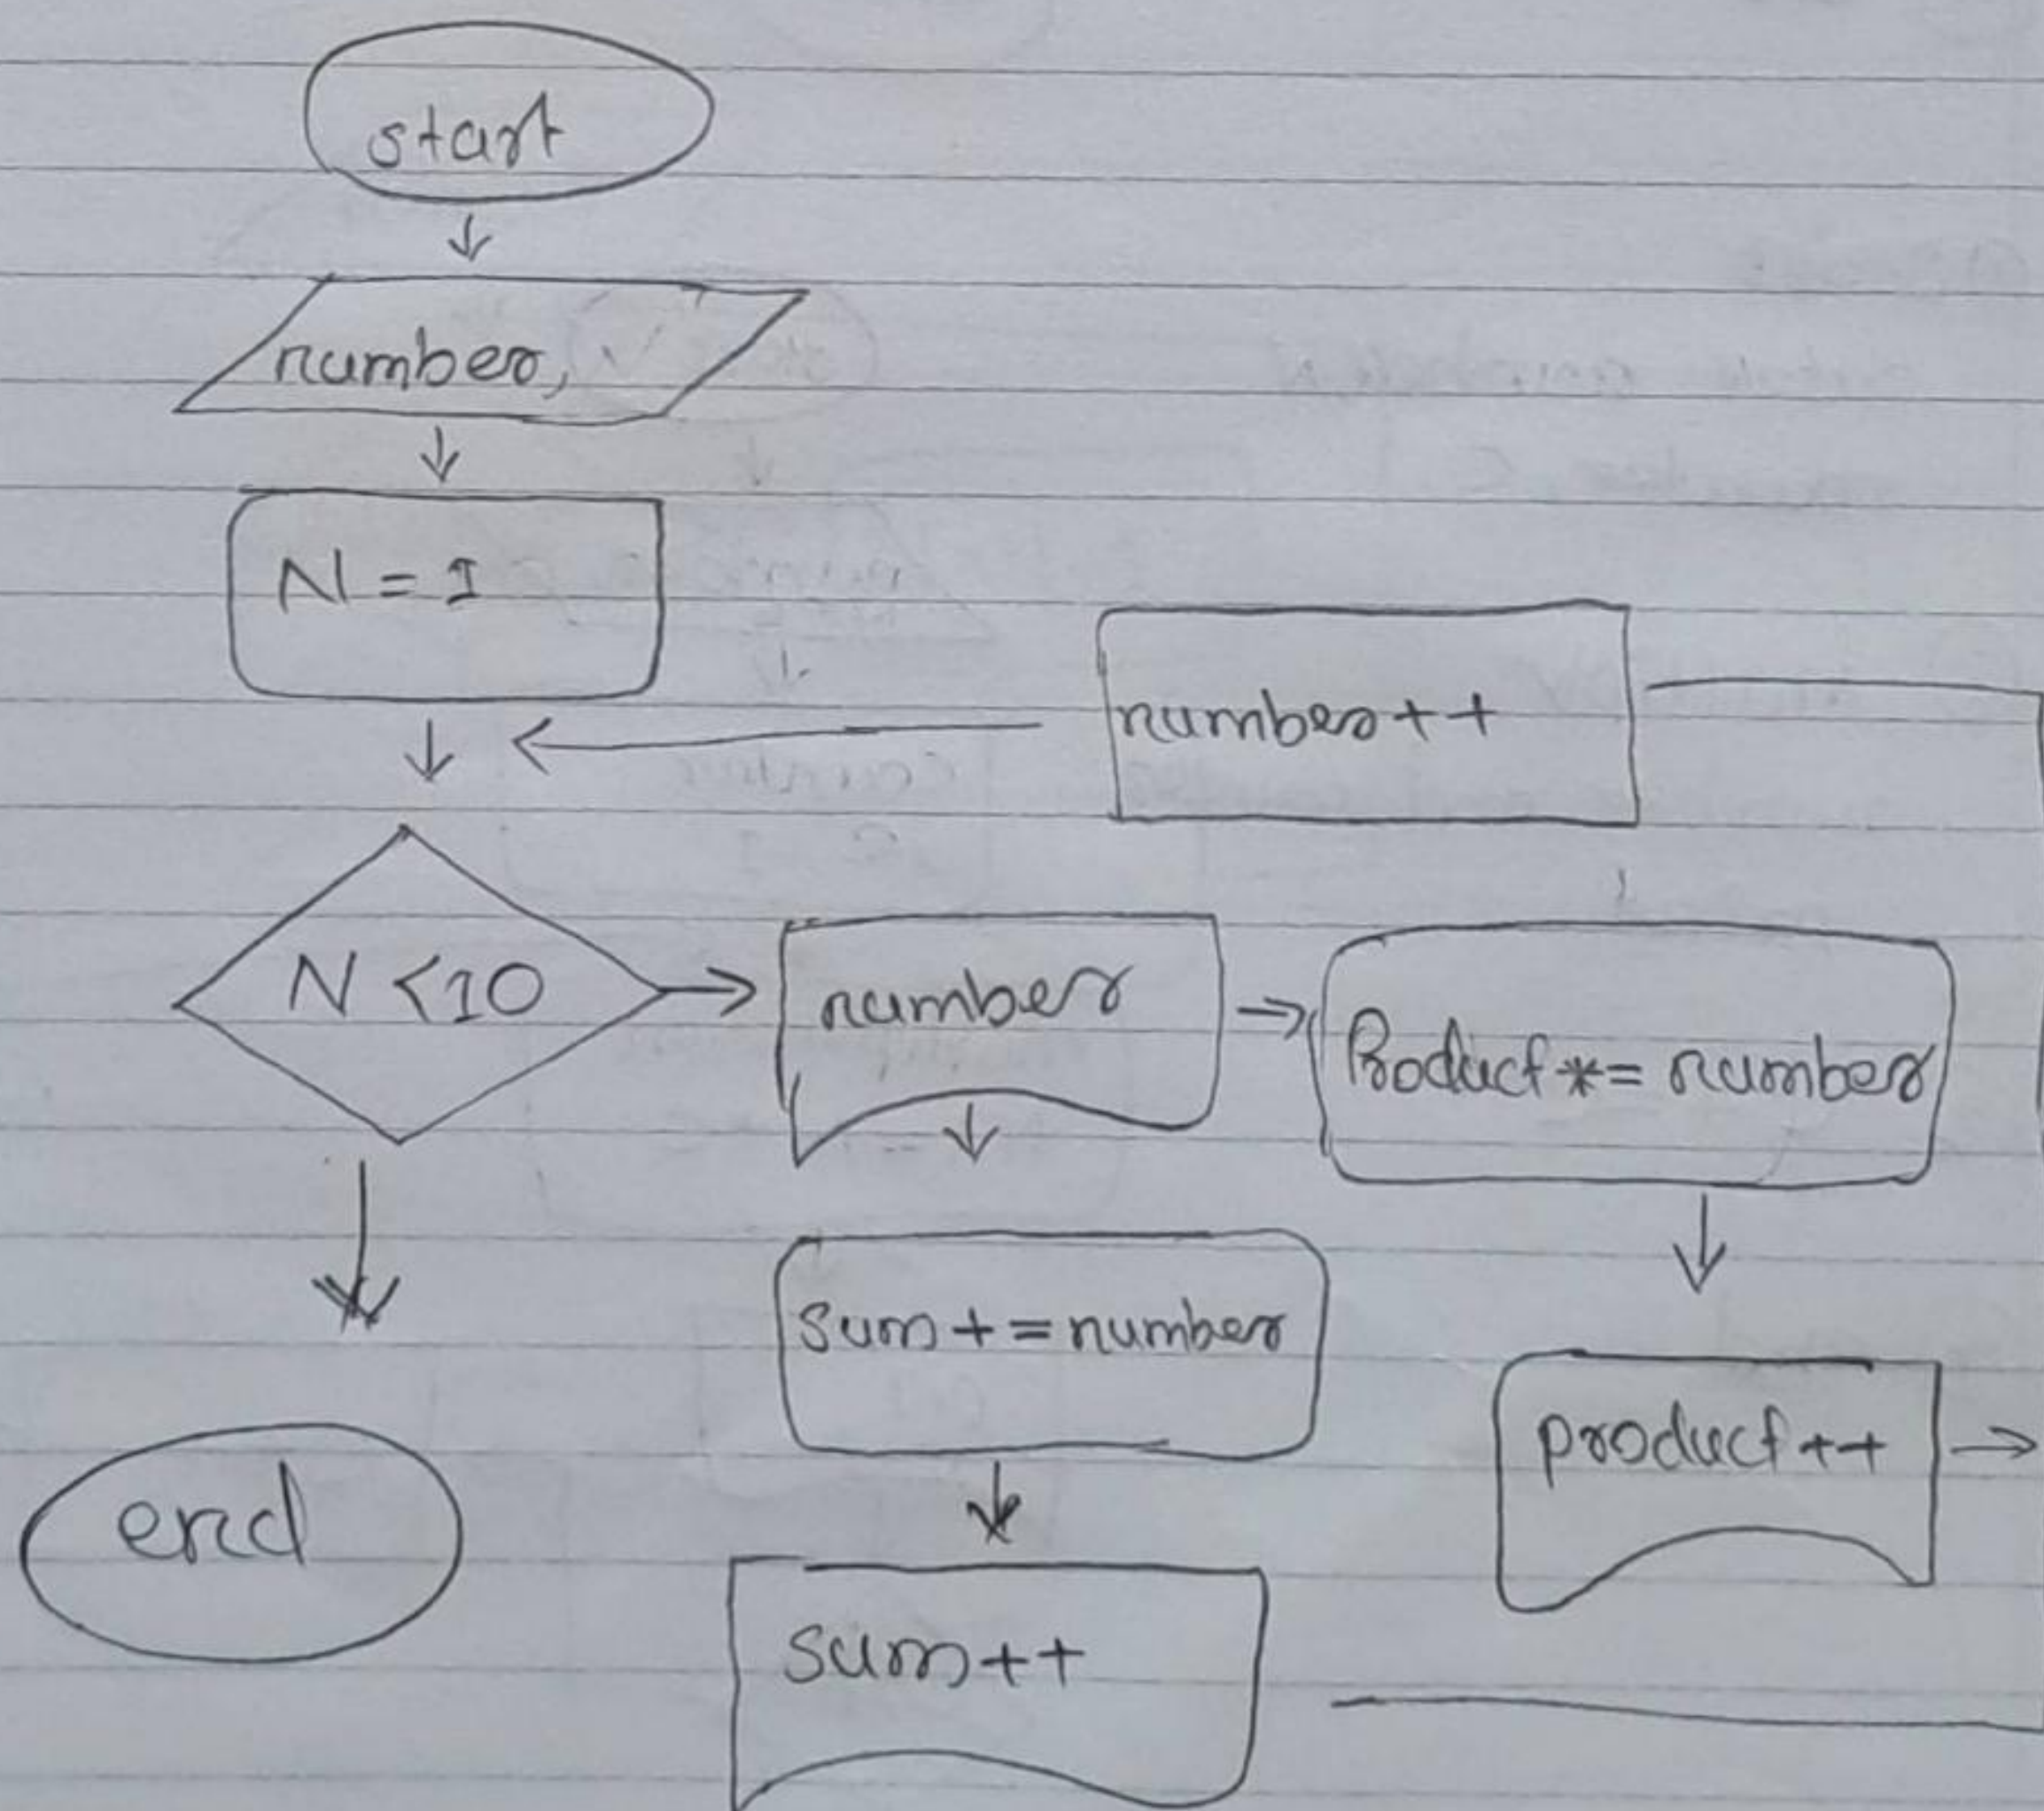 start
number,
N = 1
number++
N <10
number
Product *= number
sum + = number
product ++
end
sum++